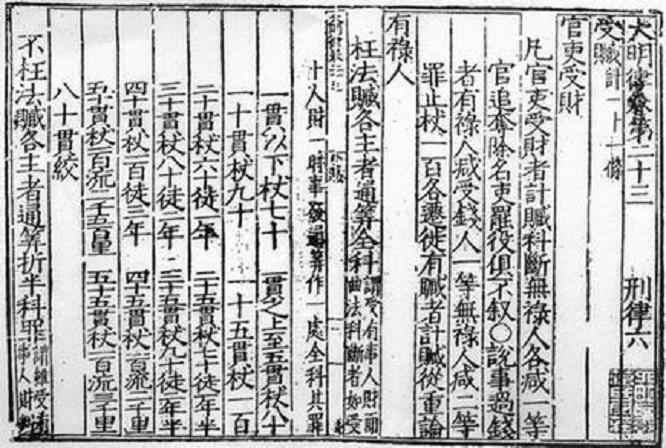 大明律卷第二十三 刑律六
受贓計一十一條
官吏受財
凡官吏受財者計贓科斷無祿人各减一等
官追奪除名吏罷役俱不叙○說事過錢
者有祿人减受錢人一等無祿人减二等
罪止杖一百各遷徙有贓者計贓從重論
有祿人
枉法贓各主者通筭全科謂受有事人財而曲法科斷者如受
十人財一時事發通筭作一處全科其罪
一貫以下杖七十 一貫之上至五貫杖八十
一十貫杖九十 一十五貫杖一百
二十貫杖六十徒一年 二十五貫杖七十徒一年半
三十貫杖八十徒二年 三十五貫杖九十徒二年半
四十貫杖一百徒三年 四十五貫杖一百流二千里
五十貫杖一百流二千五百里 五十五貫杖一百流三千里
八十貫絞
不枉法贓各主者通筭折半科罪謂雖受有事人財